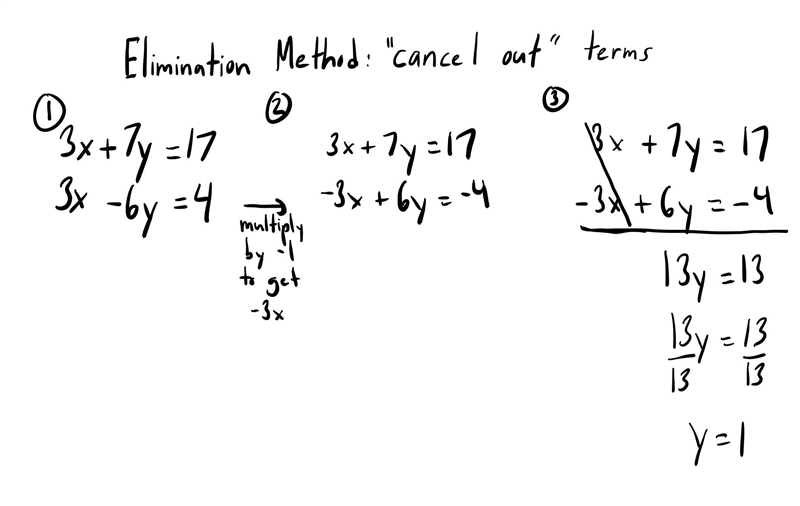 Elimination Method: "cancel out" terms
①
3x + 7y = 17
3x - 6y = 4
multiply
by -1
to get
-3x
②
3x + 7y = 17
-3x + 6y = -4
③
3x + 7y = 17
-3x + 6y = -4
13y = 13
13y = 13
13 13
y = 1